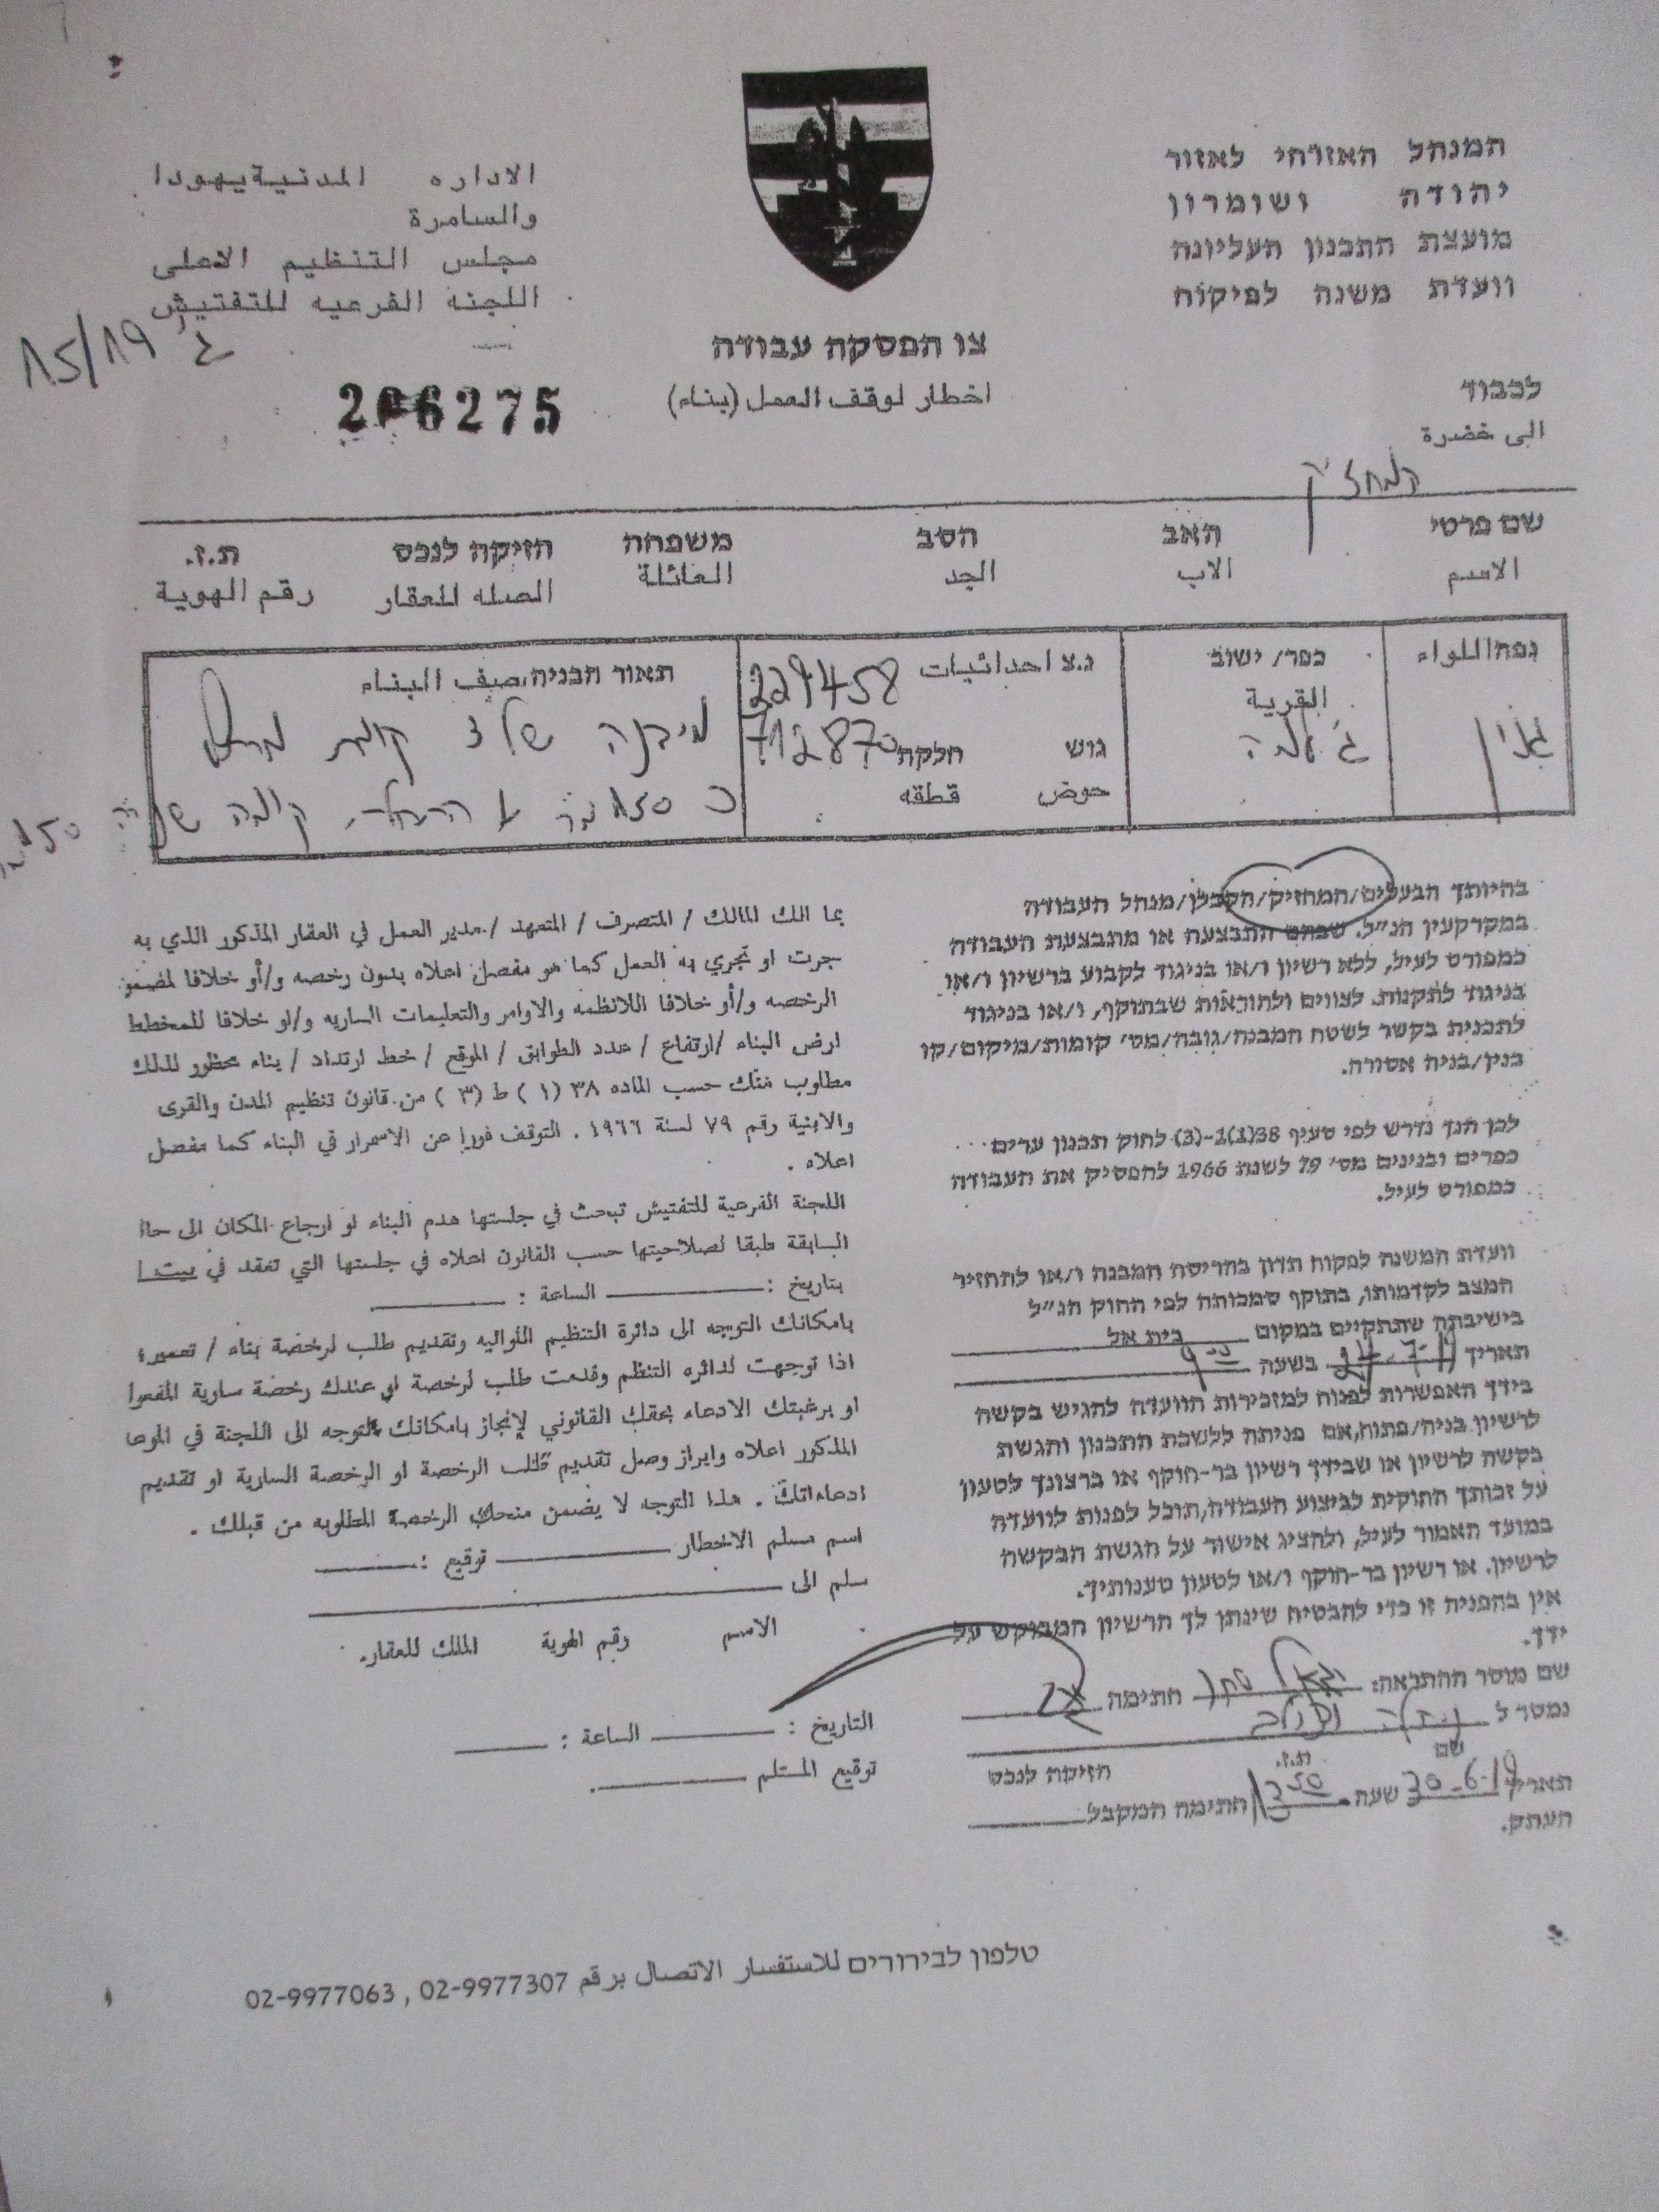 המנהל האזרחי לאזור
יהודה ושומרון
מועצת התכנון העליונה
וועדת משנה לפיקוח
الاداره المدنية يهودا
والسامرة
مجلس التنظيم الاعلى
اللجنة الفرعيه للتفتيش
ג' 15/19
צו הפסקה עבודה
اخطار لوقف العمل (بناء)
206275
לכבוד
الى حضرة
המחזיק
שם פרטי האב הסב משפחה חזיקה לנכס ת.ז.
الاسم الاب الجد العائلة الصله للعقار رقم الهوية
נפה/اللواء כפר/ ישוב נ.צ احداثيات 229458 תאור הבניה/صيف البناء
القرية
ג'נין ג'למה גוש חלקה 712870 מבנה של 2 קומות
حوض قطقه כ 150 מ"ר קומה 150
בהיותך הבעלים/המחזיק/הקבלן/מנהל העבודה
במקרקעין הנ"ל. שבהם התבצעה או מתבצעת העבודה
כמפורט לעיל, ללא רשיון ו/או בניגוד לקבוע ברשיון ו/או
בניגוד לתקנות. לצווים ולהוראות שבתוקף, ו/או בניגוד
לתכנית בקשר לשטח המבנה/גובה/מס׳ קומות/מיקום/קו
בנין/בניה אסורה.
לכן הנך נדרש לפי סעיף 38(1)ג-(3) לחוק תכנון ערים
כפרים ובנינים מס׳ 79 לשנת 1966 להפסיק את העבודה
כמפורט לעיל.
וועדת המשנה לפקוח תדון בהריסת המבנה ו/או להחזיר
המצב לקדמותו, בתוקף סמכותה לפי החוק הנ"ל
בישיבתה שתתקיים במקום בית אל
תאריך 24-7-19 בשעה 9:00
בידך האפשרות לפנות למזכירות הוועדה להגיש בקשה
לרשיון בניה/פתוח,אם פניתה ללשכת התכנון והגשת
בקשה לרשיון או שבידך רשיון בר-תוקף או ברצונך לטעון
על זכותך החוקית לביצוע העבודה,תוכל לפנות לוועדה
במועד האמור לעיל, ולהציג אישור על הגשת הבקשה
לרשיון. או רשיון בר-תוקף ו/או לטעון טענותיך.
אין בהפניה זו כדי להבטיח שינתן לך הרשיון המבוקש על
ידך.
שם מוסר ההתראה: חתימה
נמסר ל
שם ת.ז. חזיקה לנכס
תאריך 30-6-19 שעה 13:50 חתימה המקבל
העתק.
بما انك المالك / المتصرف / المتعهد / مدير العمل في العقار المذكور الذي به
جرت او تجري به العمل كما هو مفصل اعلاه بدون رخصه و/أو خلافا لمضمو
الرخصه و/أو خلافا اللانظمه والاوامر والتعليمات الساريه و/او خلافا للمخطط
ارض البناء /ارتفاع / عدد الطوابق / الموقع / خط ارتداد / بناء محظور لذلك
مطلوب منك حسب الماده ٣٨ (١) ط (٣) من قانون تنظيم المدن والقرى
والابنية رقم ٧٩ لسنة ١٩٦٦ . التوقف فورا عن الاسمرار في البناء كما مفصل
اعلاه .
اللجنة الفرعية للتفتيش تبحث في جلستها هدم البناء او ارجاع المكان الى حال
السابقة طبقا لصلاحيتها حسب القانون اعلاه في جلستها التي تعقد في بيت ا
بتاريخ : الساعة :
بامكانك التوجه الى دائرة التنظيم اللوائيه وتقديم طلب لرخصة بناء / تعمير،
اذا توجهت لدائره التنظم وقدمت طلب لرخصة او عندك رخصة سارية المفعوا
او برغبتك الادعاء بحقك القانوني لإنجاز بامكانك التوجه الى اللجنة في الموعا
المذكور اعلاه وابراز وصل تقديم طلب الرخصة او الرخصة السارية او تقديم
ادعاءاتك . هذا التوجه لا يضمن منحك الرخصة المطلوبه من قبلك .
اسم مسلم الاخطار توقيع :
سلم الى
الاسم رقم الهوية الملك للعقار.
التاريخ : الساعة :
توقيع المستلم
טלפון לבירורים للاستفسار الاتصال برقم 02-9977307 , 02-9977063